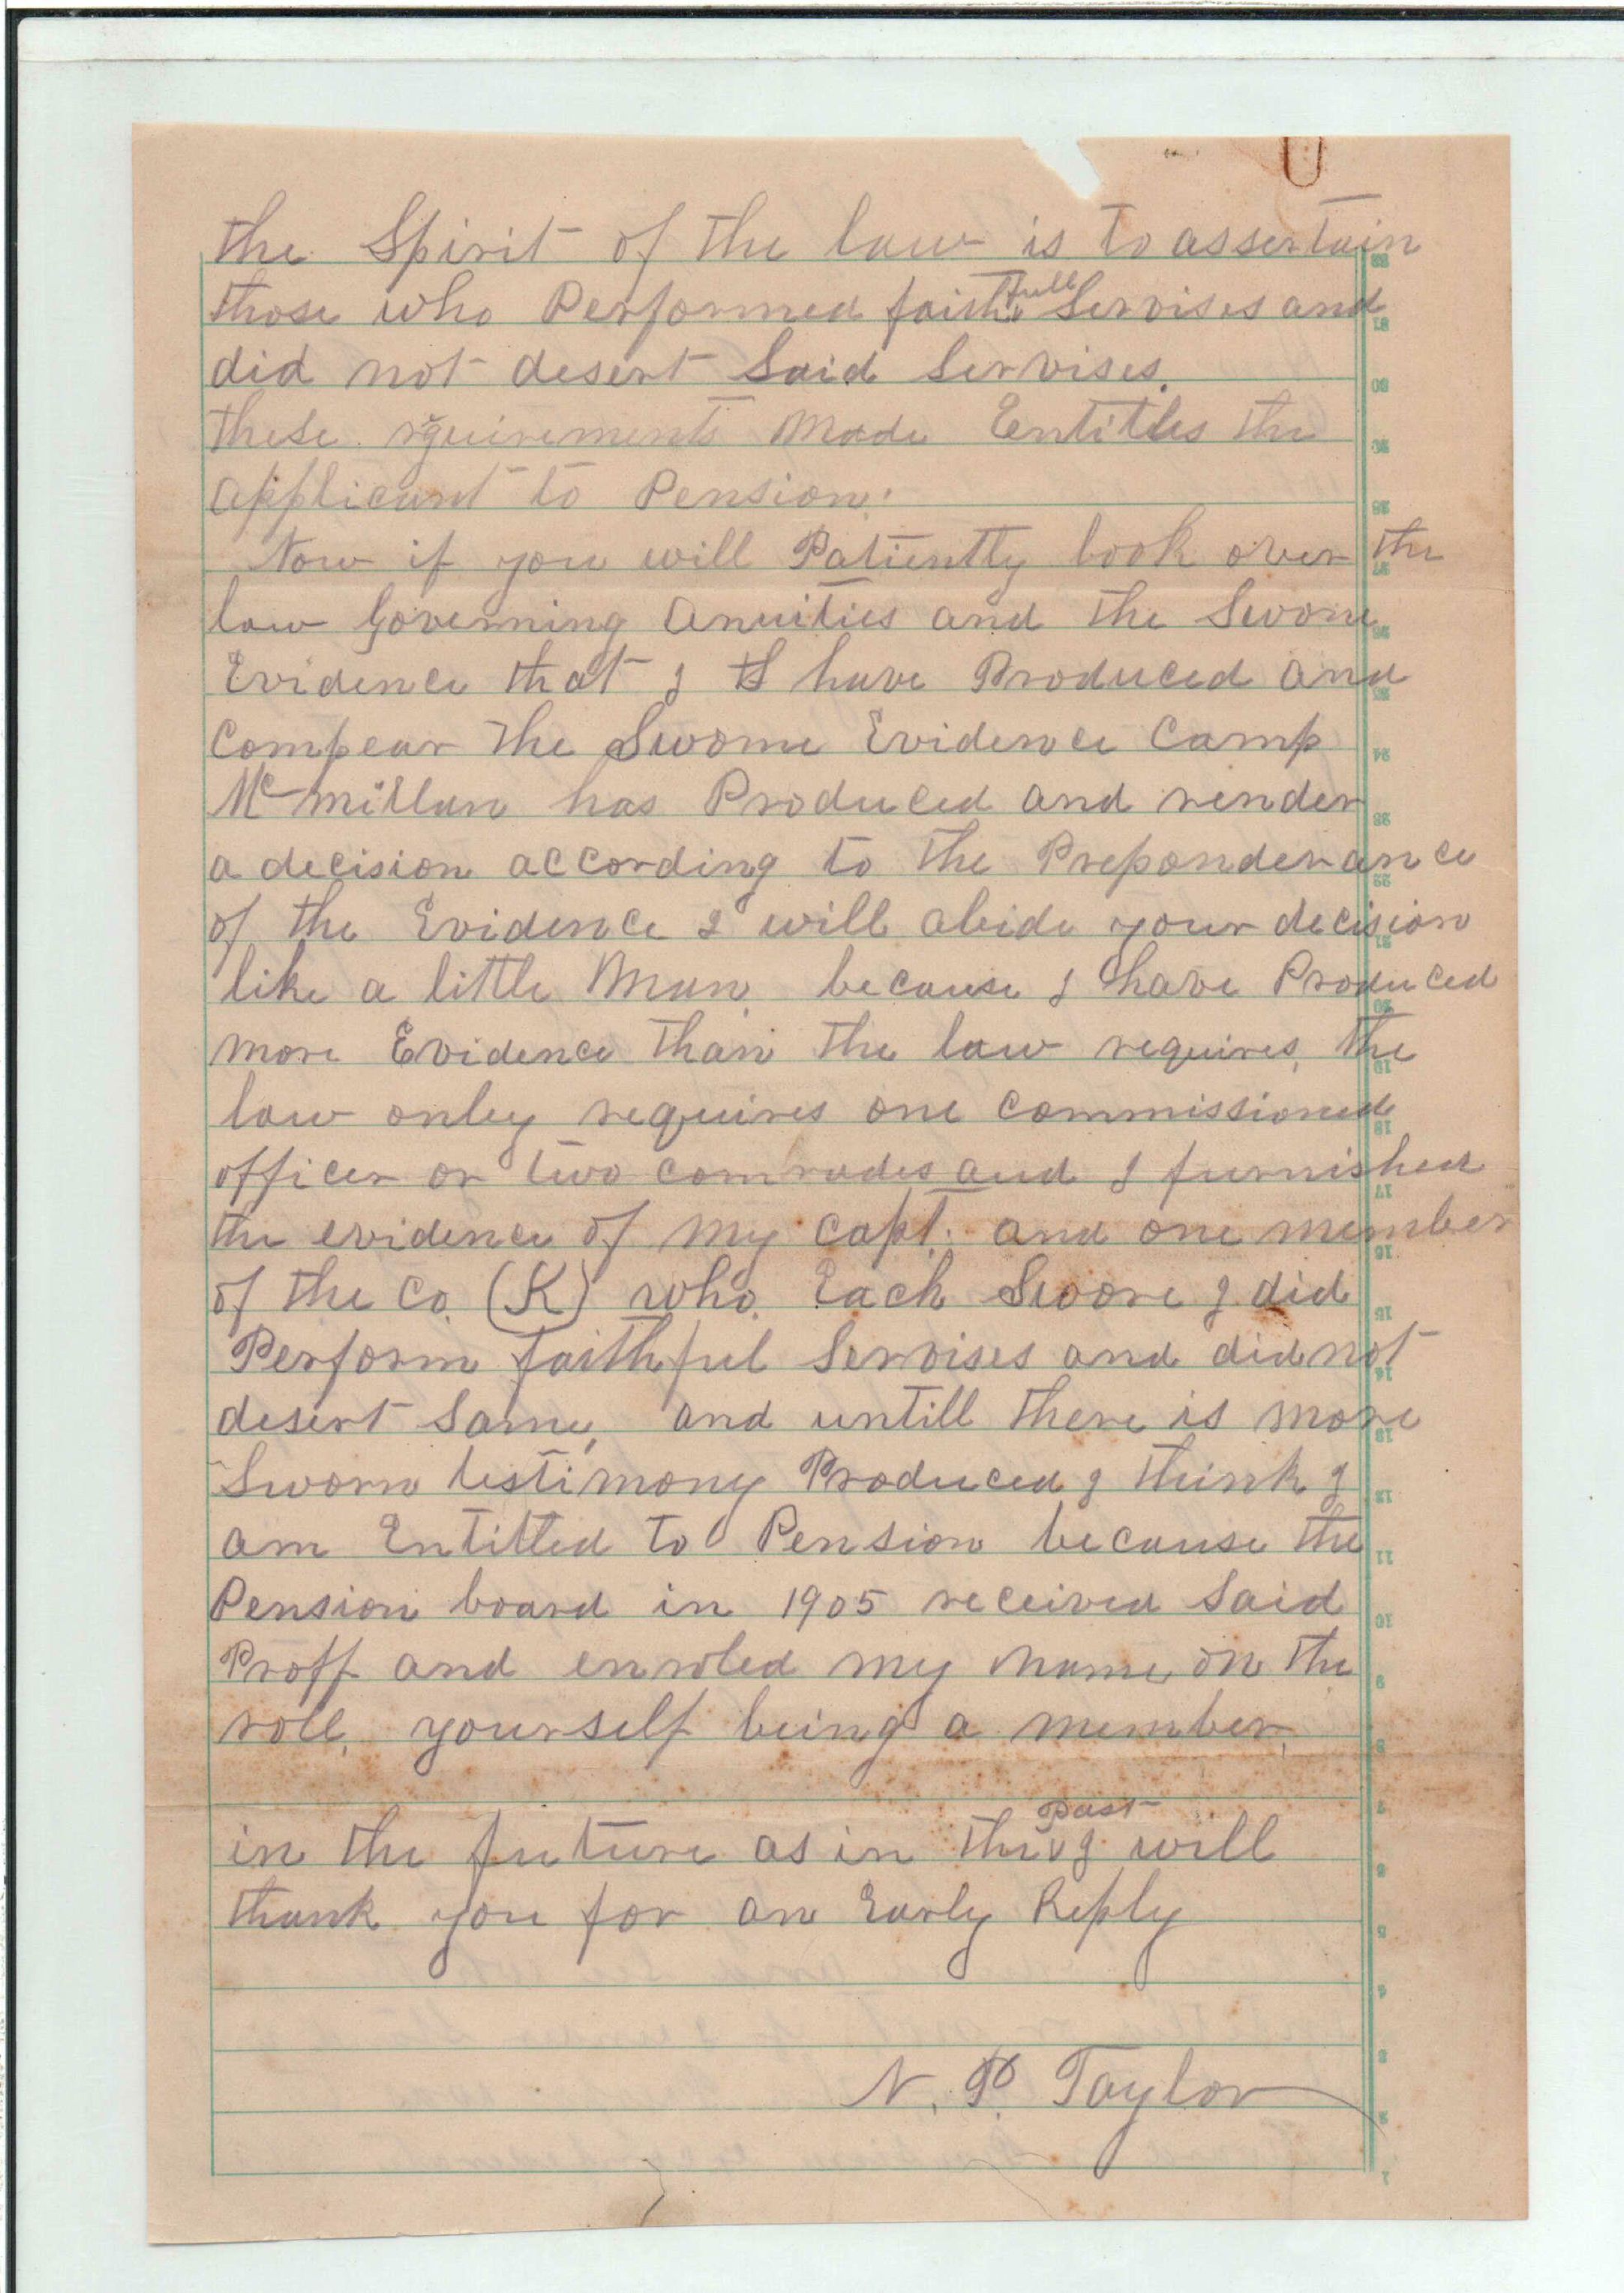 the Spirit of the law is to assertain
those who Performed faithfull Servises and
did not desert Said Servises.
these requirements made Entitles the
applicant to Pension.
Now if you will Patiently look over the
law Governing Anuities and the Sworn
Evidence that I have Produced and
Compear the Sworne Evidence Camp
McMillan has Produced and render
a decision according to the Preponderance
of the Evidence I will abide your decision
like a little Man because I have Produced
more Evidence than the law requires, the
law onley requires one commissioned
officer or two comrades and I furnished
the evidence of my capt. and one member
of the Co. (K) who Each Swore I did
Perform faithful Servises and did not
desert Same, and untill there is more
Sworn testimony Produced I think I
am Entitled to Pension because the
Pension board in 1905 received Said
Proff and enroled my name on the
roll, yourself being a member,
in the future as in the Past I will
thank you for an Early Reply
N. P. Taylor